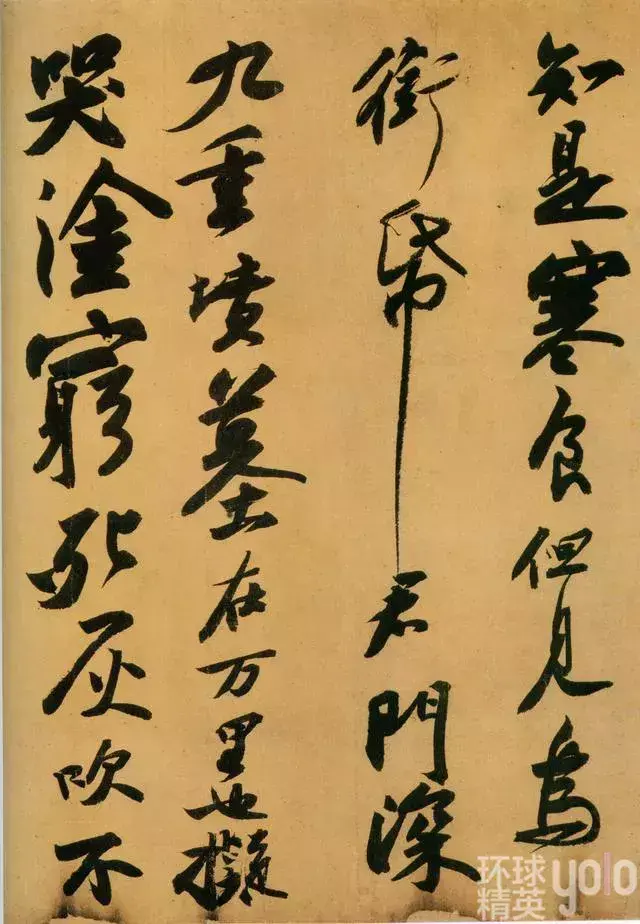 知是寒食但見烏
銜帋君門深
九重墳墓在万里也擬
哭塗窮死灰吹不
环球
精英 yolo